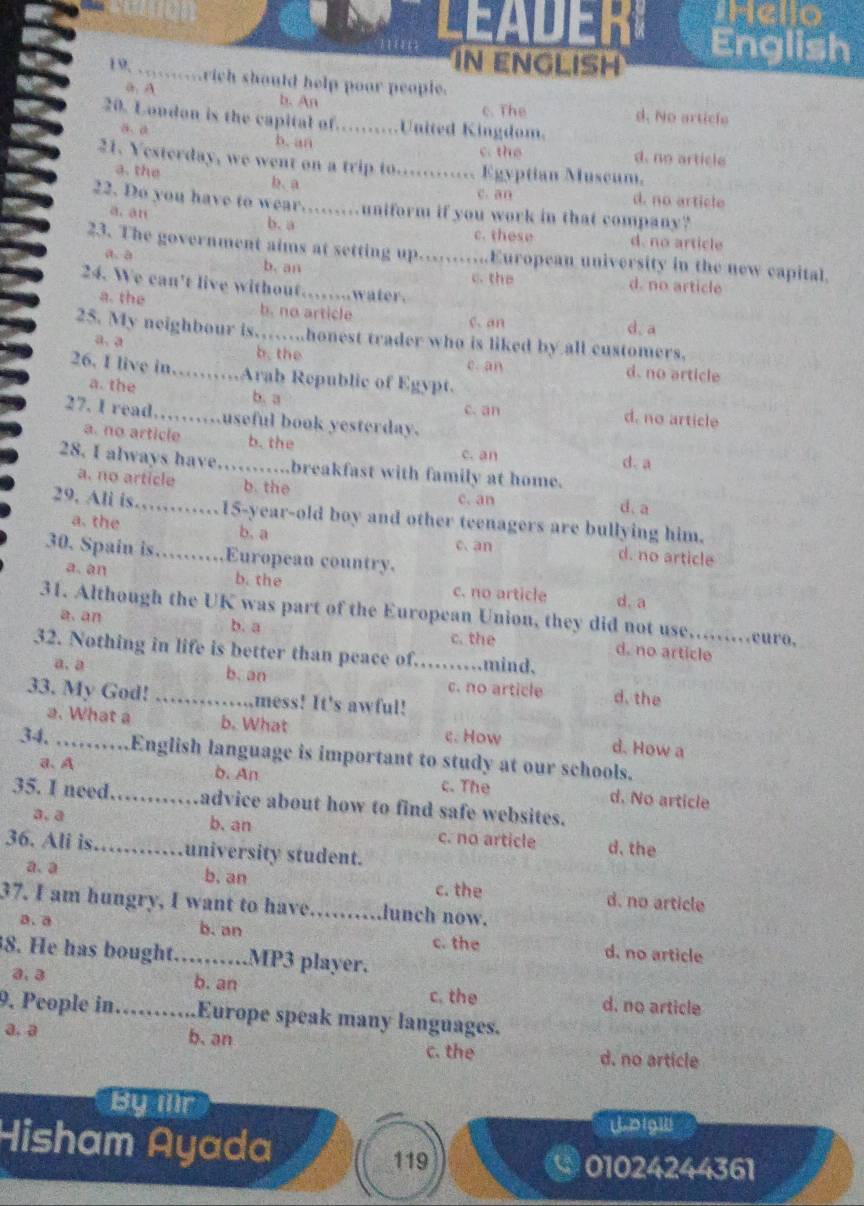 LEADER
IN ENGLISH
Hello
English
19. ..........rich should help poor people.
a. A b. An c. The d. No article
20. London is the capital of..........United Kingdom.
a. a b. an c. the d. no article
21. Yesterday, we went on a trip to............ Egyptian Museum.
a. the b. a c. an d. no article
22. Do you have to wear.........uniform if you work in that company?
a. an b. a c. these d. no article
23. The government aims at setting up...........European university in the new capital.
a. a b. an c. the d. no article
24. We can't live without........water.
a. the b. no article c. an d. a
25. My neighbour is........honest trader who is liked by all customers.
a. a b. the c. an d. no article
26. I live in..........Arab Republic of Egypt.
a. the b. a c. an d. no article
27. I read..........useful book yesterday.
a. no article b. the c. an d. a
28. I always have...........breakfast with family at home.
a. no article b. the c. an d. a
29. Ali is............15-year-old boy and other teenagers are bullying him.
a. the b. a c. an d. no article
30. Spain is..........European country.
a. an b. the c. no article d. a
31. Although the UK was part of the European Union, they did not use.........euro.
a. an b. a c. the d. no article
32. Nothing in life is better than peace of..........mind.
a. a b. an c. no article d. the
33. My God! ..............mess! It's awful!
a. What a b. What c. How d. How a
34. ..........English language is important to study at our schools.
a. A b. An c. The d. No article
35. I need............advice about how to find safe websites.
a. a b. an c. no article d. the
36. Ali is............university student.
a. a b. an c. the d. no article
37. I am hungry, I want to have..........lunch now.
a. a b. an c. the d. no article
38. He has bought..........MP3 player.
a. a b. an c. the d. no article
9. People in...........Europe speak many languages.
a. a b. an c. the d. no article
By Mr
Hisham Ayada
119
للتواصل
01024244361